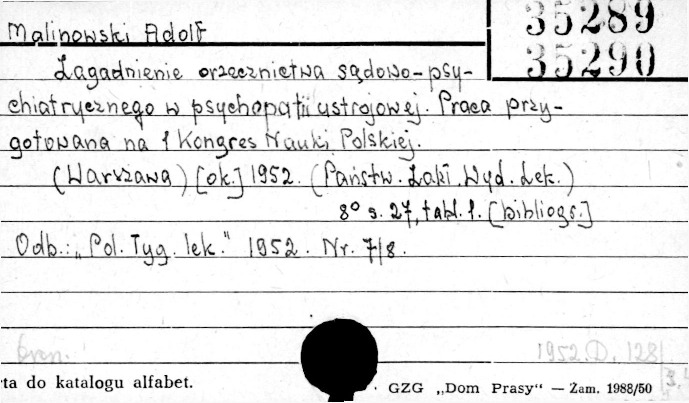 35289
Malinowski Adolf
35290
Zagadnienie orzecznictwa sądowo-psy-
chiatrycznego w psychopatii ustrojowej. Praca przy-
gotowana na 1 Kongres Nauki Polskiej.
(Warszawa) [ok.] 1952. (Państw. Zakł. Wyd. Lek.)
8° s. 27, tabl. 1. [bibliogr.]
Odb.: „Pol. Tyg. lek." 1952. Nr. 7/8.
1952.D. 128
ta do katalogu alfabet.
GZG „Dom Prasy“ — Zam. 1988/50